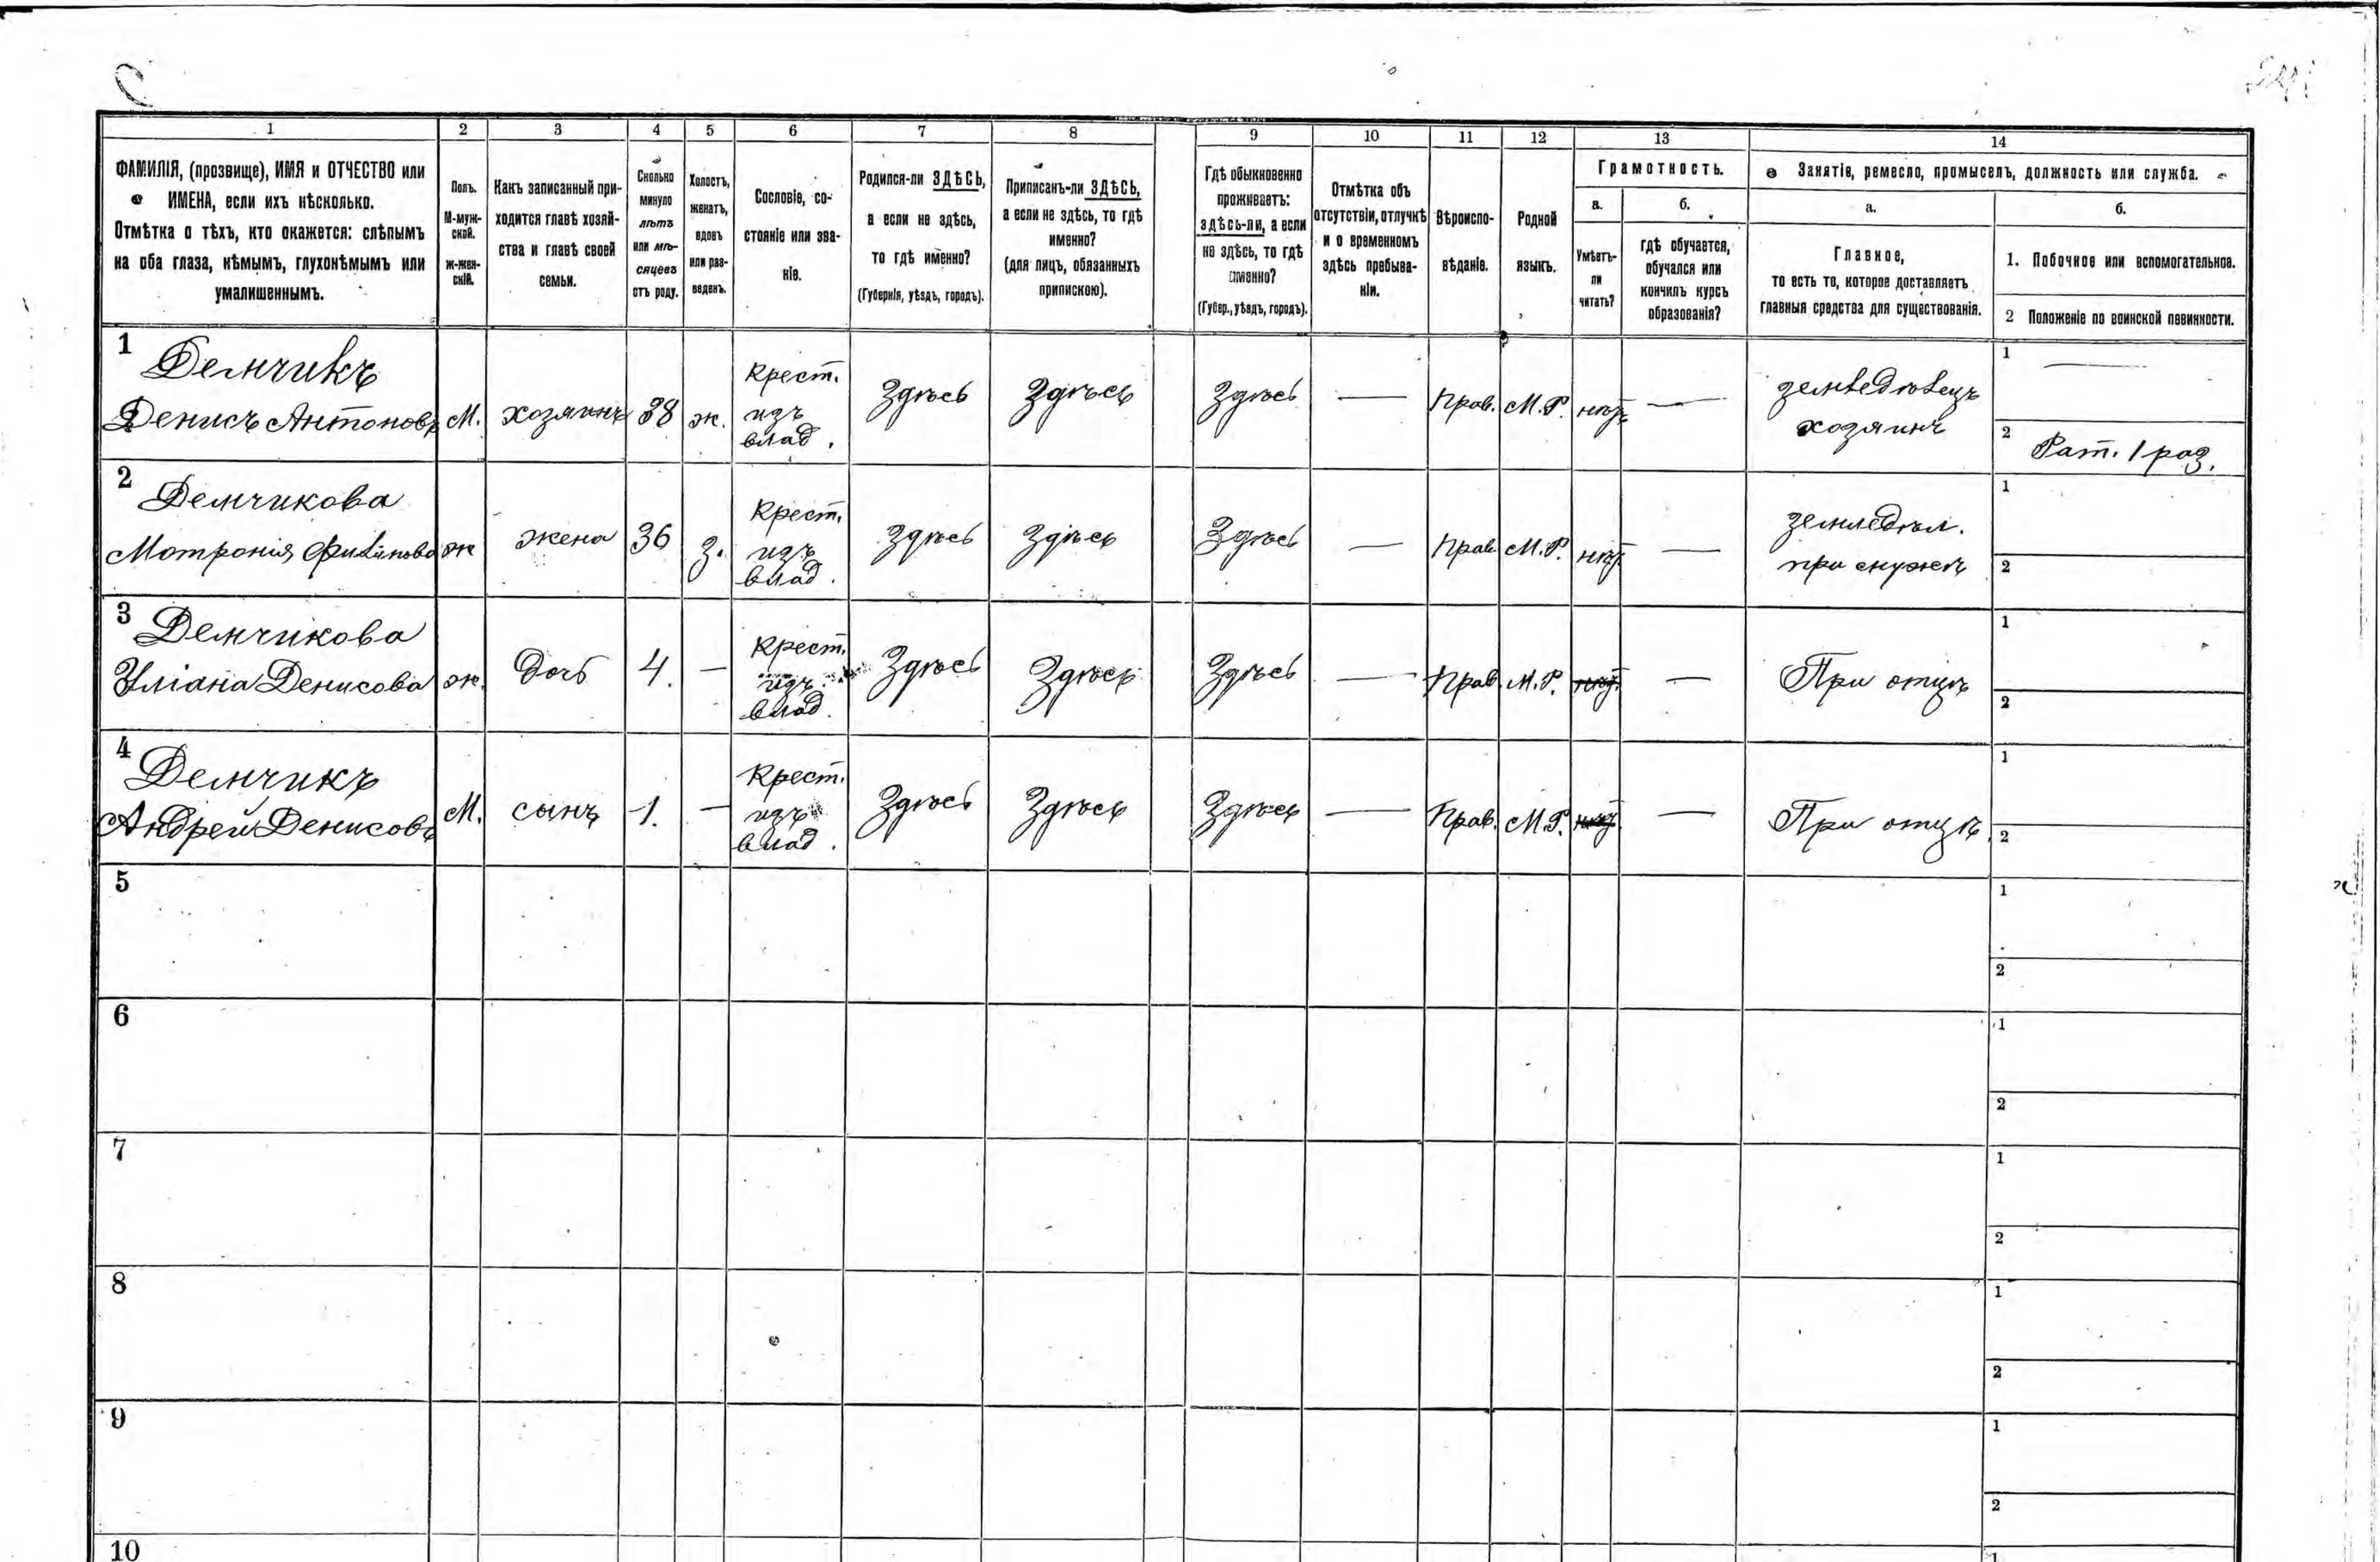 1 2 3 4 5 6 7 8 9 10 11 12 13 14
ФАМИЛІЯ, (прозвище), ИМЯ и ОТЧЕСТВО или
ИМЕНА, если ихъ нѣсколько.
Отмѣтка о тѣхъ, кто окажется: слѣпымъ
на оба глаза, нѣмымъ, глухонѣмымъ или
умалишеннымъ.
Полъ.
М-муж-
ской.
ж-жен-
скій.
Какъ записанный при-
ходится главѣ хозяй-
ства и главѣ своей
семьи.
Сколько
минуло
лѣтъ
или мѣ-
сяцевъ
отъ роду.
Холостъ,
женатъ,
вдовъ
или раз-
веденъ.
Сословіе, со-
стояніе или зва-
ніе.
Родился-ли ЗДѢСЬ,
а если не здѣсь,
то гдѣ именно?
(Губернія, уѣздъ, городъ).
Приписанъ-ли ЗДѢСЬ,
а если не здѣсь, то гдѣ
именно?
(для лицъ, обязанныхъ
припискою).
Гдѣ обыкновенно
проживаетъ:
ЗДѢСЬ-ЛИ, а если
не здѣсь, то гдѣ
именно?
(Губер., уѣздъ, городъ).
Отмѣтка объ
отсутствіи, отлучкѣ
и о временномъ
здѣсь пребыва-
ніи.
Вѣроиспо-
вѣданіе.
Родной
языкъ.
Грамотность.
а.
Умѣетъ-
ли
читать?
б.
гдѣ обучается,
обучался или
кончилъ курсъ
образованія?
Занятіе, ремесло, промыселъ, должность или служба.
а.
Главное,
то есть то, которое доставляетъ
главныя средства для существованія.
б.
1. Побочное или вспомогательное.
2 Положеніе по воинской повинности.
1
Демчикъ
Денисъ Антоновъ
М.
хозяинъ
38
ж.
Крест.
изъ
влад.
Здѣсь
Здѣсь
Здѣсь
—
Прав.
М.Р.
нѣтъ
—
земледѣлецъ
хозяинъ
1 —
2 Рат. 1 раз.
2
Демчикова
Мотронія Филипова
ж
жена
36
з.
Крест.
изъ
влад.
Здѣсь
Здѣсь
Здѣсь
—
Прав.
М.Р.
нѣт.
—
земледѣл.
при мужѣ
1
2
3
Демчикова
Уліана Денисова
ж.
дочь
4.
—
Крест.
изъ
влад.
Здѣсь
Здѣсь
Здѣсь
—
Прав.
М.Р.
—
При отцѣ
1
2
4
Демчикъ
Андрей Денисовъ
М.
сынъ
1.
—
Крест.
изъ
влад.
Здѣсь
Здѣсь
Здѣсь
—
Прав.
М.Р.
—
При отцѣ
1
2
5
1
2
6
1
2
7
1
2
8
1
2
9
1
2
10
1